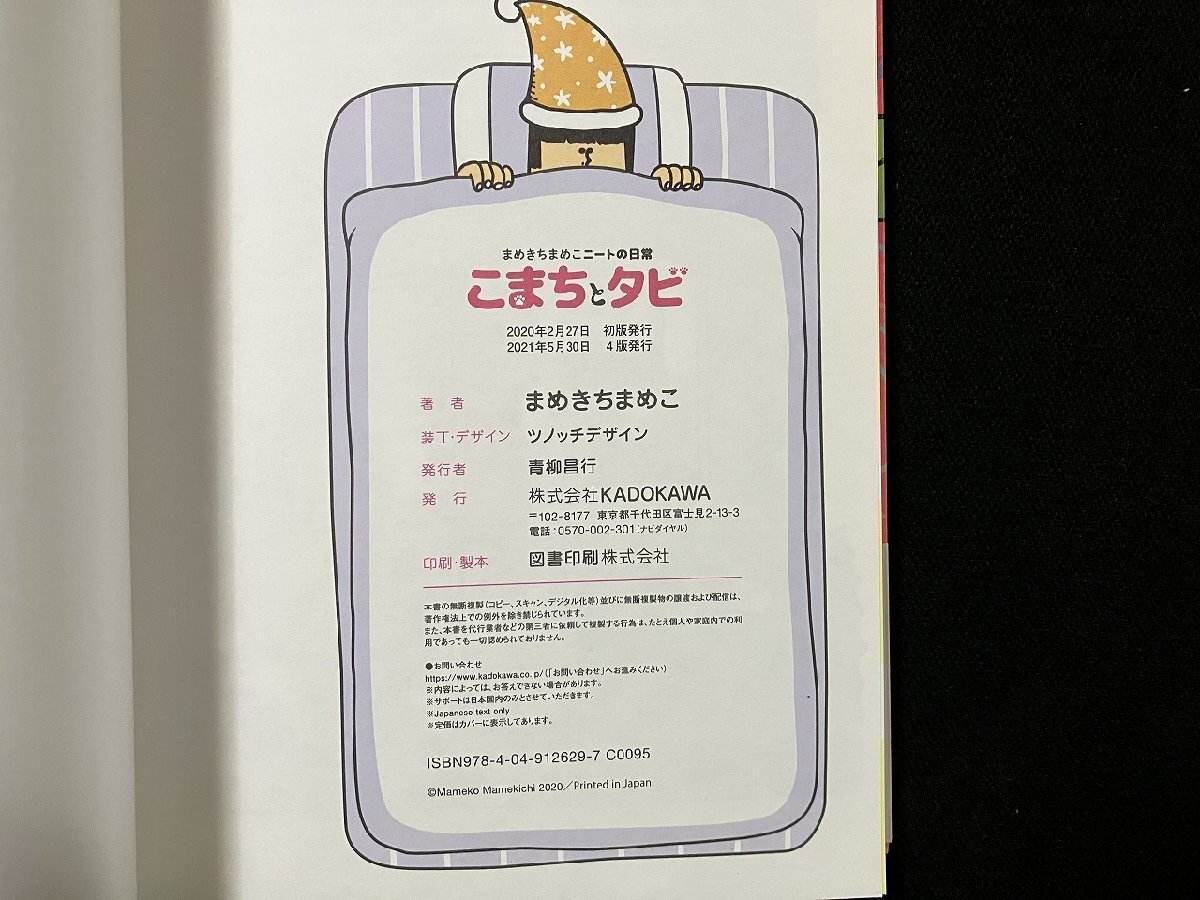 まめきちまめこニートの日常
こまちとタビ
2020年2月27日　初版発行
2021年5月30日　4版発行
著　者　まめきちまめこ
装丁・デザイン　ツノッチデザイン
発行者　青柳昌行
発　行　株式会社KADOKAWA
〒102-8177　東京都千代田区富士見2-13-3
電話：0570-002-301（ナビダイヤル）
印刷・製本　図書印刷株式会社
本書の無断複製（コピー、スキャン、デジタル化等）並びに無断複製物の譲渡および配信は、
著作権法上での例外を除き禁じられています。
また、本書を代行業者などの第三者に依頼して複製する行為は、たとえ個人や家庭内での利
用であっても一切認められておりません。
●お問い合わせ
https://www.kadokawa.co.jp/（「お問い合わせ」へお進みください）
※内容によっては、お答えできない場合があります。
※サポートは日本国内のみとさせていただきます。
※Japanese text only
※定価はカバーに表示してあります。
ISBN978-4-04-912629-7 C0095
©Mameko Mamekichi 2020／Printed in Japan